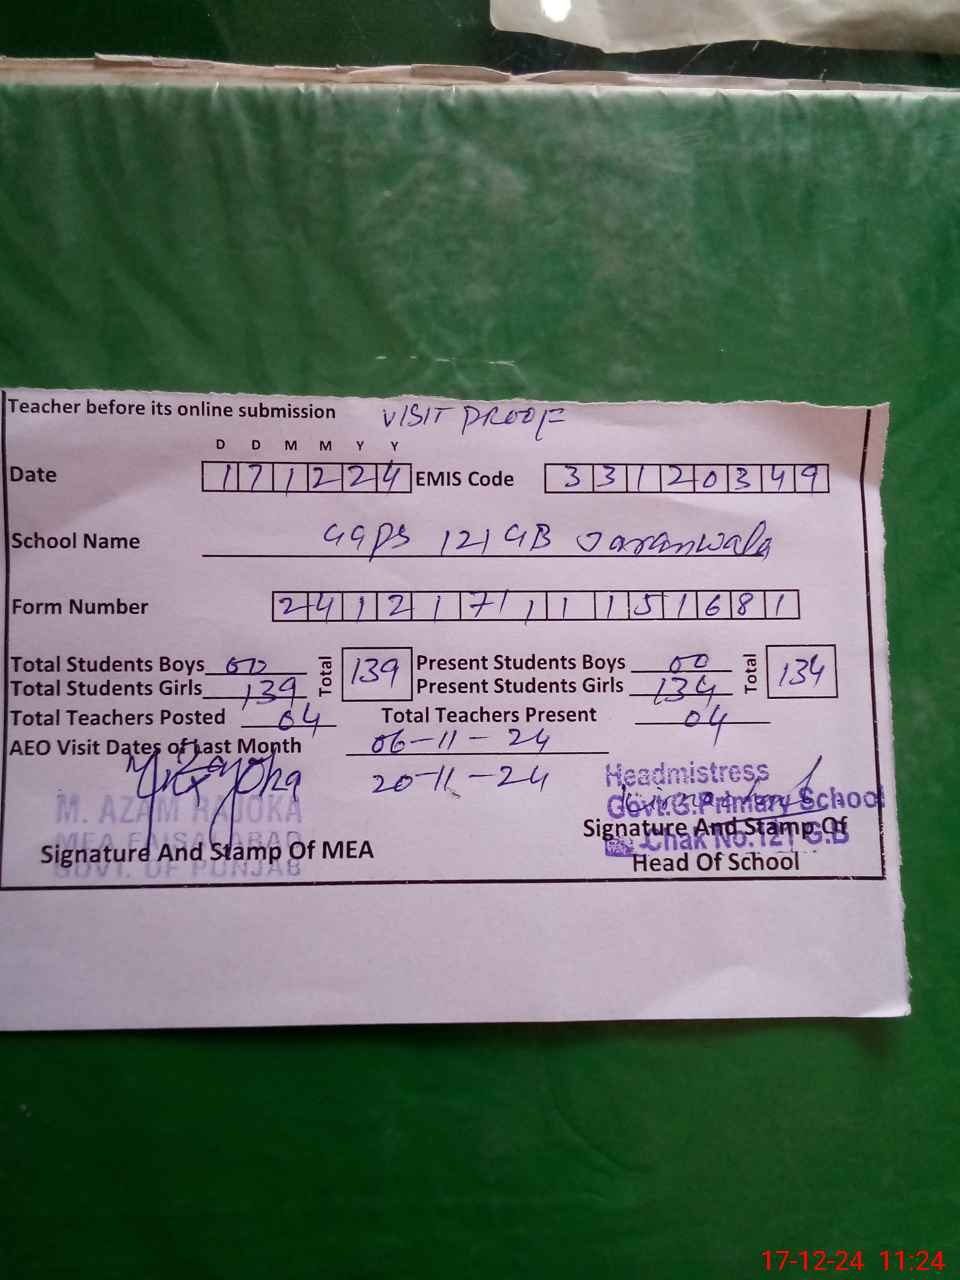 Teacher before its online submission VISIT PROOF
D D M M Y Y
Date 171224 EMIS Code 33120349
School Name GGPS 121 GB Jaranwala
Form Number 24121711151681
Total Students Boys 00 Total 139 Present Students Boys 00 Total 134
Total Students Girls 139 Present Students Girls 134
Total Teachers Posted 04 Total Teachers Present 04
AEO Visit Dates of Last Month 06-11-24
20-11-24
M. AZAM RAJOKA
MEA FAISALABAD
GOVT. OF PUNJAB
Signature And Stamp Of MEA
Headmistress
Govt.G.Primary School
Chak No.121 G.B
Signature And Stamp Of
Head Of School
17-12-24 11:24